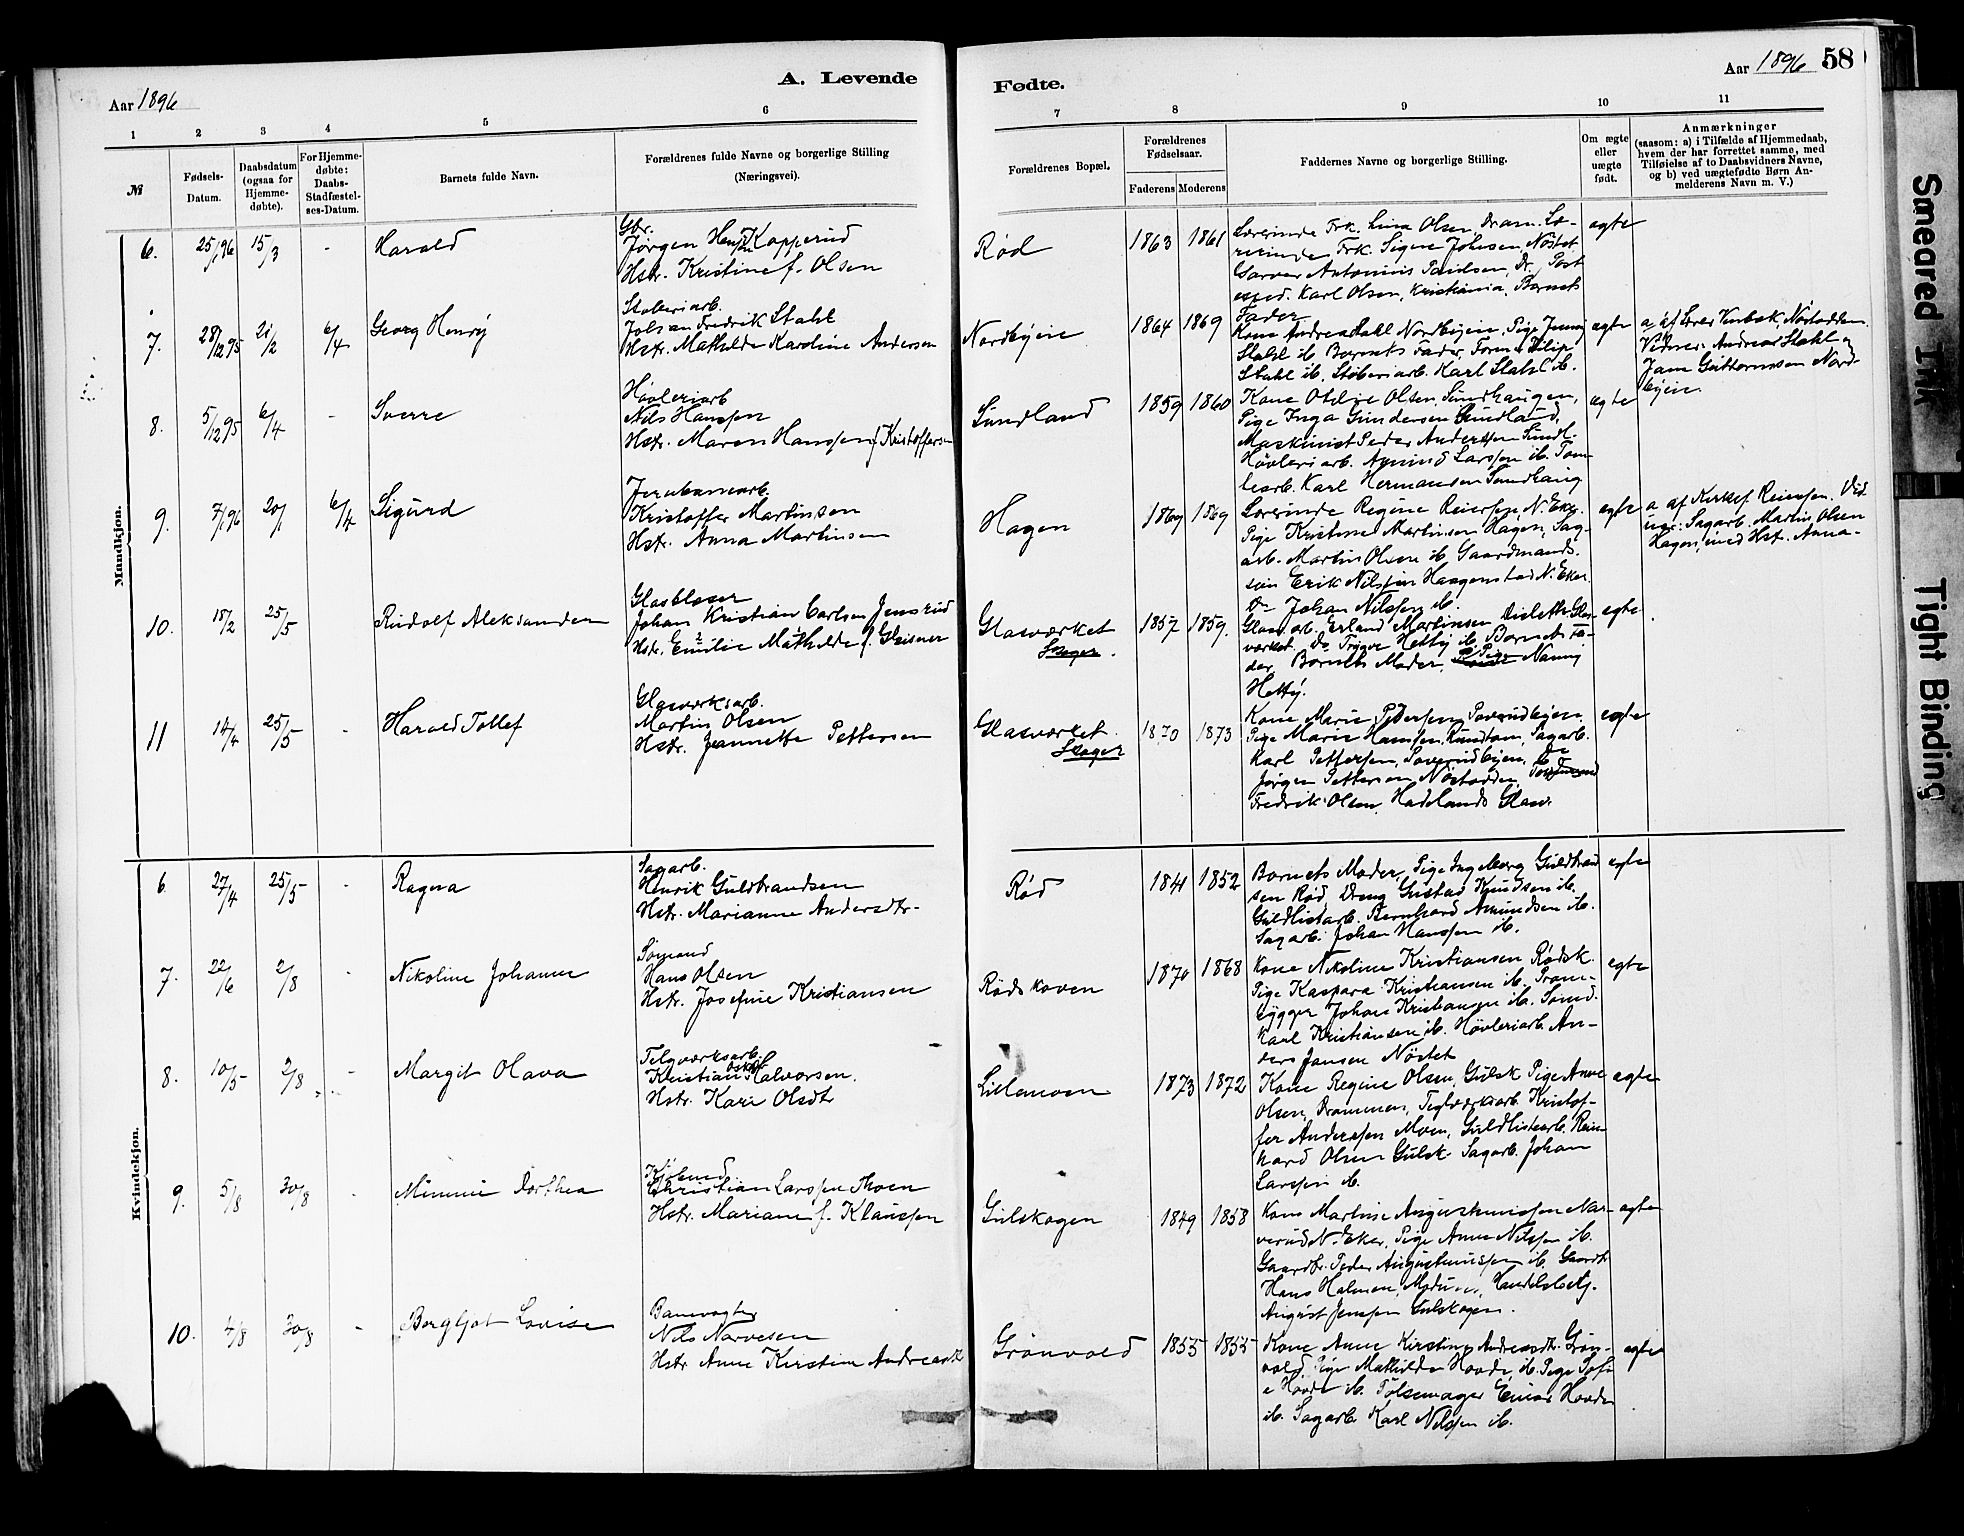 Aar 1896
A. Levende
Fødte.
Aar 1896
58
1 2 3 4 5 6 7 8 9 10 11
№
Fødsels-Datum.
Daabsdatum (ogsaa for Hjemme-døbte).
For Hjemme-døbte: Daabs-Stadfæstel-ses-Datum.
Barnets fulde Navn.
Forældrenes fulde Navne og borgerlige Stilling (Næringsvei).
Forældrenes Bopæl.
Forældrenes Fødselsaar.
Faderens Moderens
Faddernes Navne og borgerlige Stilling.
Om ægte eller uægte født.
Anmærkninger
(saasom: a) i Tilfælde af Hjemmedaab, hvem der har forrettet samme, med Tilføielse af to Daabsvidners Navne, og b) ved uægtefødte Børn An-melderens Navn m. V.)
Mandkjøn.
6. 25/1 96 15/3 - Harald
Gbr.
Jørgen Kopperud
Hstr. Kristine f. Olsen
Rød 1863 1861
Lærerinde Frk. Lina Olsen, Dram. Læ-
rerinde Frk. Signe Johnsen, Nøstet
Garver Antonius Paulsen, Dr., Post
exped. Karl Olsen, Kristiania, Barnets
Fader
ægte
7. 28/12 95 21/2 6/4 Georg Henry
Støberiarb.
Johan Fredrik Stahl
Hstr. Mathilde Karoline Andersen
Nordbyeie 1864 1869
Kone Andrea Dahl Nordbyeie, Pige Jenny
Stahl ib. Barnets Fader, Former Filip
Stahl ib. Støberiarb. Karl Stahl ib.
ægte
a af Lærer Vinbæk, Nøstodden.
Vidner: Andreas Stahl og
Jane Guttormsen Nord-
byeie
8. 5/12 95 6/4 - Sverre
Høvleriarb
Nils Hanssen
Hstr. Maren Hanssen f Kristoffersen
Sundland 1859 1860
Kone Otelie Olsen, Sundhaugen,
Pige Inga Gundersen Sundland,
Maskinist Peder Anderssen Sundl.
Høvleriarb. Amund Larssen ib. Tom-
tearb. Karl Hermansen Sundhaug
ægte
9. 7/1 96 20/1 6/4 Sigurd
Jernbanearb.
Kristoffer Martinsen
Hstr. Anna Martinsen
Hagen 1869 1869
Lærerinde Regine Reiersen N. Eker
Pige Kristine Martinsen Hagen, Sag-
arb. Martin Olsen ib Gaardmands.
søn Erik Nilssen Haagenstad N. Eker
Do Johan Nilssen ib.
ægte
a af Kirkes. Reierssen. Vid
ner: Sagarb. Martin Olsen
Hagen, med Hst. Anna-
10. 18/2 25/5 Rudolf Aleksander
Glasblæser
Johan Kristian Carlsen Jensrud
Hstr. Emilie Mathilde f. Gleisner
Glasværket
Skoger.
1857 1859.
Glasv. arb. Erland Martinsen
værket. Do Trygve Hetty ib Barnets Fa-
der, Barnets Moder, Pige Nanny
Hetty.
ægte
11 14/4 25/5 - Harald Tollef
Glasværksarb.
Martin Olsen
Hstr. Jeannette Pettersen
Glasværket.
Skoger
1870 1873
Kone Marie Pedersen, Poverudbyen
Pige Marie Hanssen, Sagarb.
Karl Pettersen, Poverudbyen,
Jørgen Pettersen Nøstodden
Fredrik Olsen, Hadelands Glasv.
ægte
Kvindekjøn.
6 27/4 25/5 - Ragna
Sagarb.
Henrik Guldbrandsen
Hstr. Marianne Andersdtr.
Rød 1841 1852
Barnets Moder, Pige Ingeborg Guldbrand
sen Rød, Dreng Gustav Knudsen ib.
Guldlistarb. Bernhard Amundsen ib.
Sagarb. Johan Hanssen ib.
ægte
7. 22/6 2/8 - Nikoline Johanne
Sømand
Hans Olsen
Hstr. Josefine Kristiansen
Rødskoven 1870 1868
Kone Nikoline Kristiansen Rødsk.
Pige Kaspara Kristiansen ib. Pram-
bygger Johan Kristiansen ib. Sømd.
Karl Kristiansen ib. Høvleriarb. An-
ders Jansen Nøstet
ægte
8. 10/5 2/8 - Margit Olava
Teglværksarb.
Kristian Oskar Halvorsen.
Hstr. Kari Olsdtr
Lillemoen 1873 1872
Kone Regine Olsen, Gulsk. Pige Anne
Olsen, Drammen, Teglværksarb. Kristof-
fer Anderssen Moen, Guldlistearb. Rein-
hard Olsen Gulsk. Sagarb. Johan
Larssen ib.
ægte
9. 5/8 30/8 - Mimmi Dorthea
Christian Larssen Moen
Hstr. Mariane f. Klaussen
Gulskogen 1849 1858
Kone Martine Augustinussen Nar-
verud N. Eker, Pige Anne Nilssen ib.
Gaardbr. Peder Augustinussen ib. Gaardbr
Hans Halmen, Handelsbetj.
August Jenssen Gulskogen.
ægte
10. 4/8 30/8 - Borghjot Lovise
Banevogter
Nils Narvesen
Hstr Anne Kirstine Andreasdtr
Grønvold 1855 1855
Kone Anne Kirstine Andreasdtr. Grøn-
vold, Pige Mathilde Hovde, ib. Pige Sofi
e Hovde ib. Pølsemager Einar Hovde
ib. Sagarb. Karl Nilssen ib.
ægte
Smeared Ink
Tight Binding